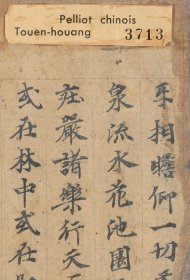 Pelliot chinois
Touen-houang 3713
相瞻仰一切
泉流水花池園
莊嚴諸樂行天
或在林中或在